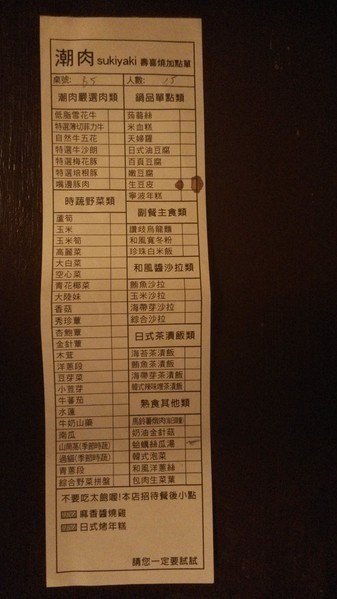 潮肉 sukiyaki 壽喜燒加點單
桌號: 人數: 15
潮肉嚴選肉類 鍋品單點類
低脂雪花牛 蒟蒻絲
特選薄切菲力牛 米血糕
自然牛五花 天婦羅
特選牛沙朗 日式油豆腐
特選梅花豚 百頁豆腐
特選培根豚 嫩豆腐
嘴邊豚肉 生豆皮
時蔬野菜類 寧波年糕
蘆筍 副餐主食類
玉米 讚歧烏龍麵
玉米筍 和風寬冬粉
高麗菜 珍珠白米飯
大白菜 和風醬沙拉類
空心菜 鮪魚沙拉
青花椰菜 玉米沙拉
大陸妹 海帶芽沙拉
香菇 綜合沙拉
秀珍蕈 日式茶漬飯類
杏鮑蕈 海苔茶漬飯
金針蕈 鮪魚茶漬飯
木茸 海帶芽茶漬飯
洋蔥段 韓式辣味噌茶漬飯
豆芽菜 熟食其他類
小荳芽 馬鈴薯燉肉
牛蕃茄 奶油金針菇
水蓮 蛤蠣絲瓜湯
牛奶山藥 韓式泡菜
南瓜 和風洋蔥絲
山茼蒿(季節時蔬) 包肉生菜葉
過貓(季節時蔬)
青蔥段
綜合野菜拼盤
不要吃太飽喔!本店招待餐後小點
麻香醬燒雞
日式烤年糕
請您一定要試試